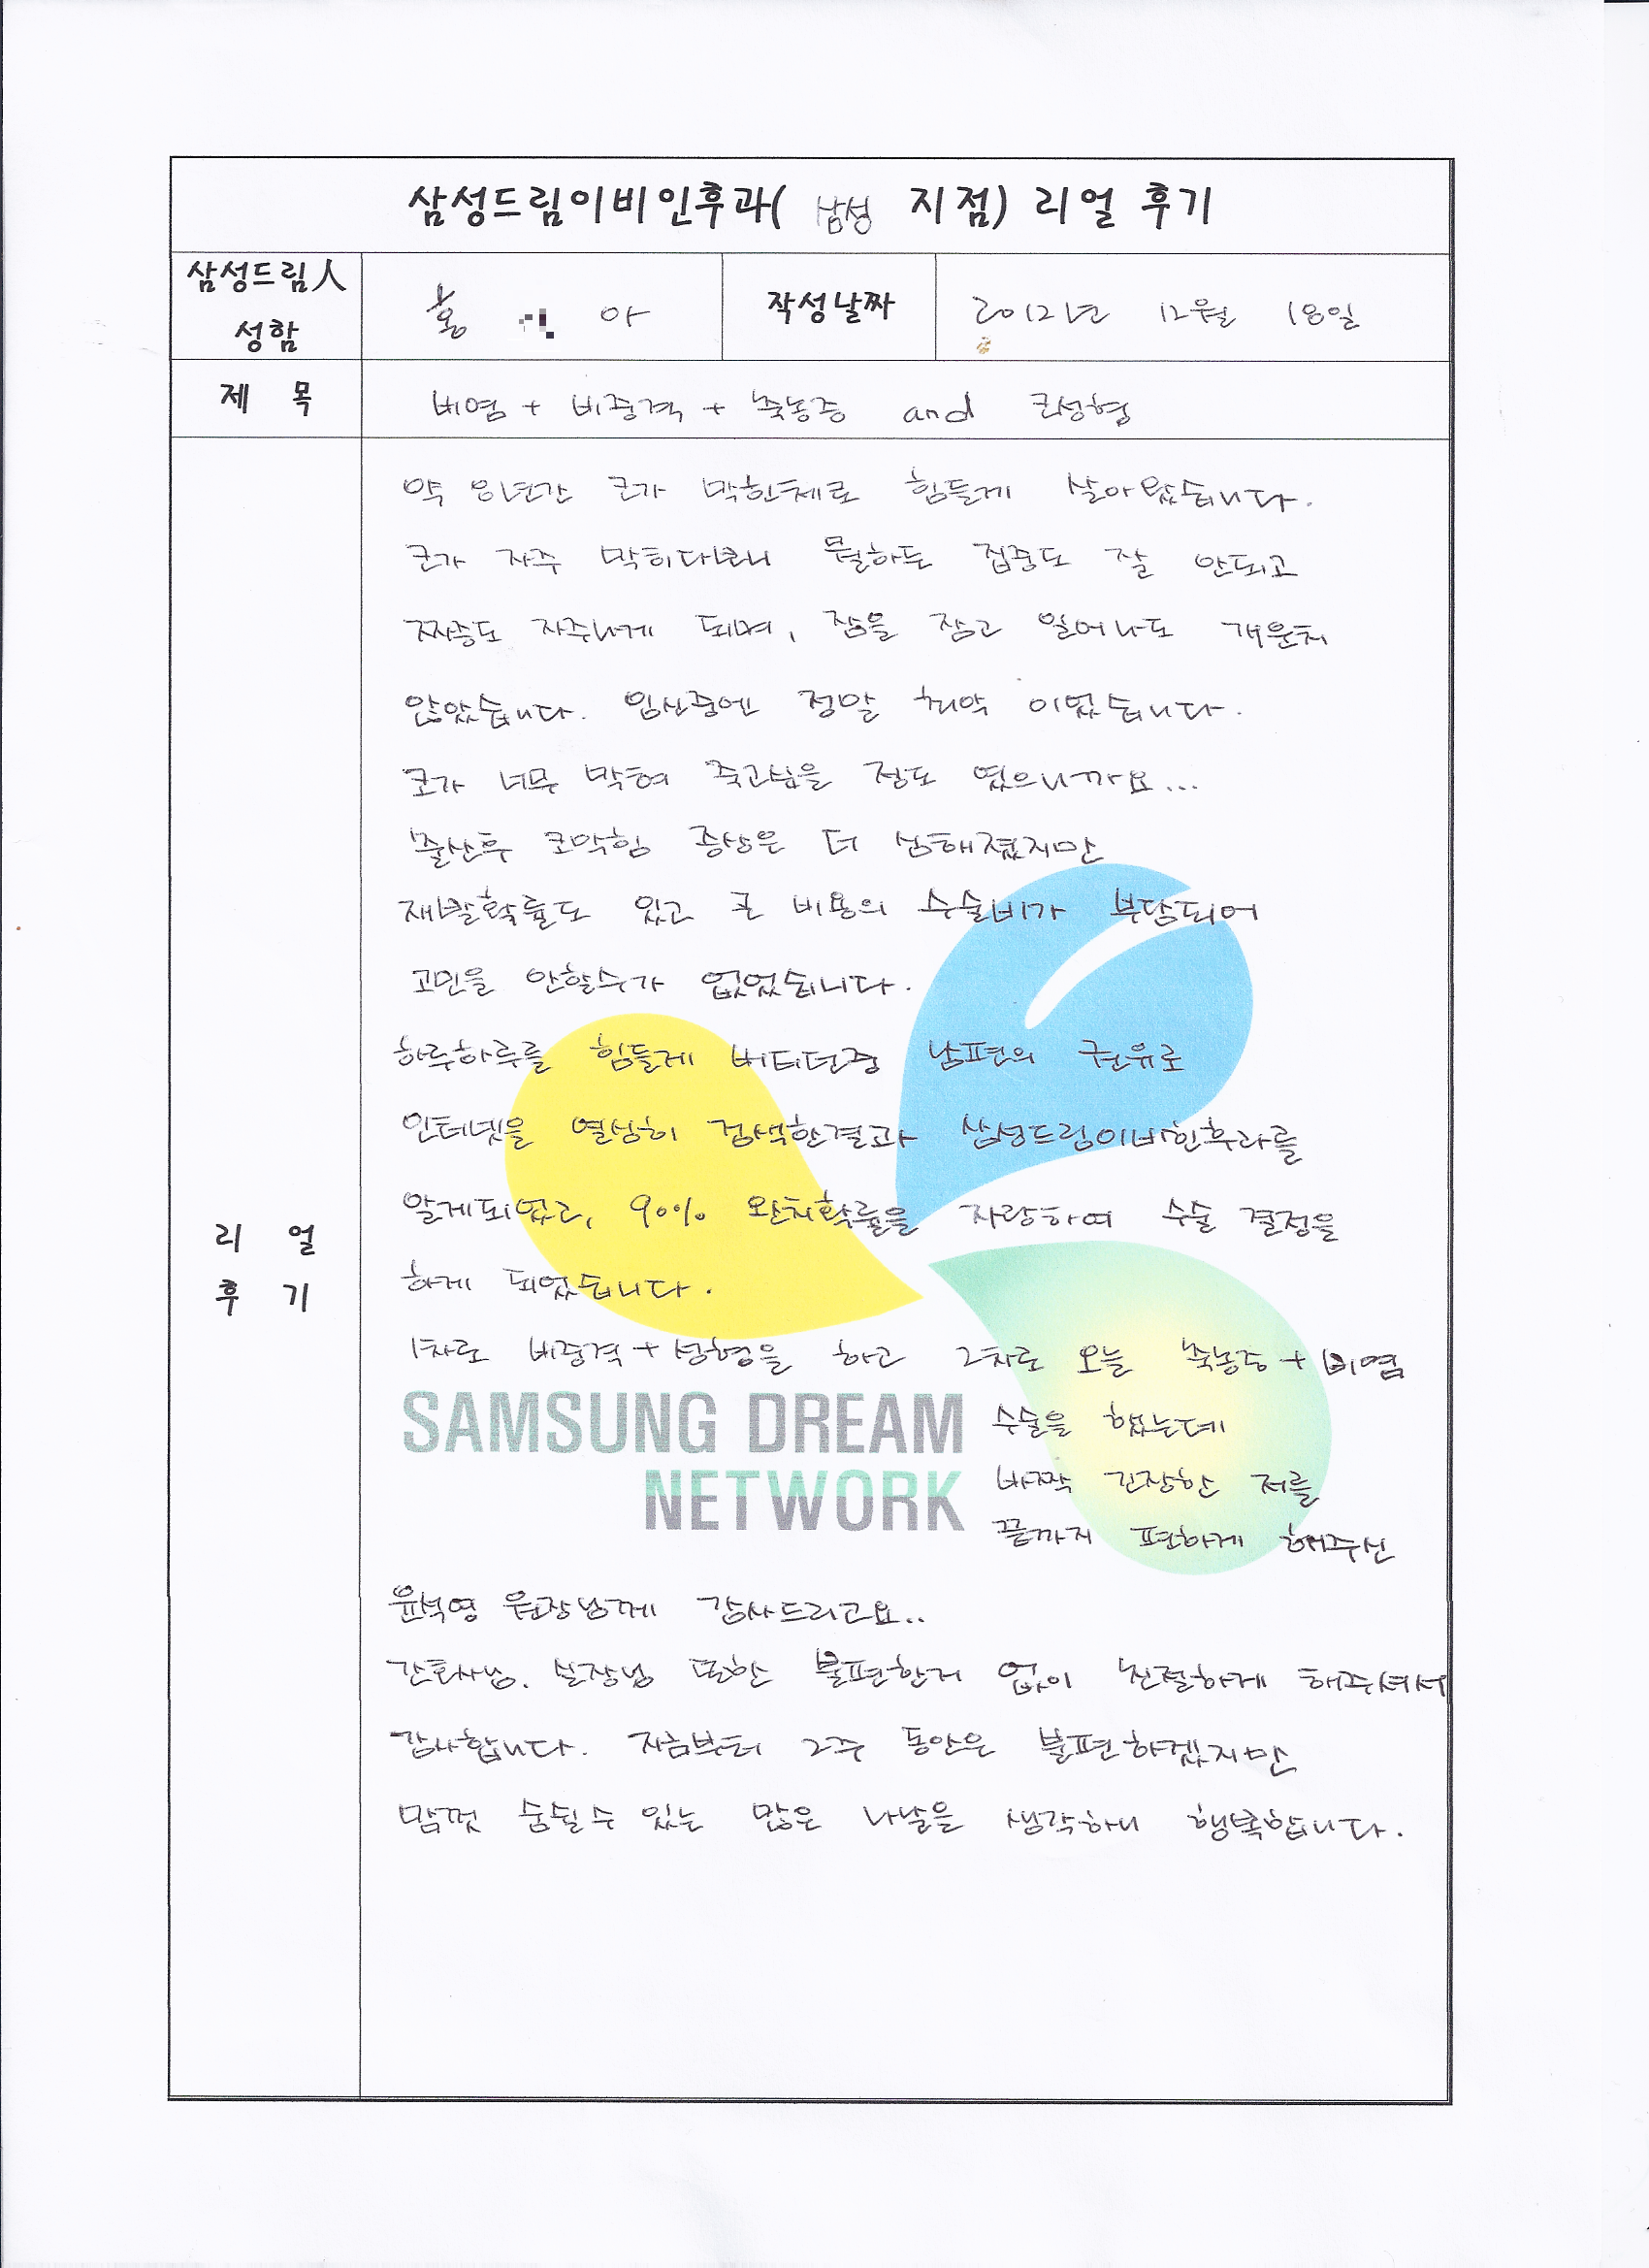 삼성드림이비인후과( 삼성 지점) 리얼 후기
삼성드림人
성함
홍 아
작성날짜
2012년 12월 18일
제 목
비염 + 비중격 + 축농증 and 코성형
약 8년간 코가 막힌체로 힘들게 살아왔습니다.
코가 자주 막히다보니 뭘하든 집중도 잘 안되고
짜증도 자주나게 되며, 잠을 잠고 일어나도 개운치
않았습니다. 임신중엔 정말 최악 이었습니다.
코가 너무 막혀 죽고싶을 정도 였으니까요...
출산후 코막힘 증상은 더 심해졌지만
재발확률도 있고 큰 비용의 수술비가 부담되어
고민을 안할수가 없었습니다.
하루하루를 힘들게 버티던중 남편의 권유로
인터넷을 열심히 검색한결과 삼성드림이비인후과를
알게되었고, 90% 완치확률을 자랑하여 수술 결정을
하게 되었습니다.
1차로 비중격+성형을 하고 2차로 오늘 축농증+비염
수술을 했는데
바짝 긴장한 저를
끝까지 편하게 해주신
윤석영 원장님께 감사드리고요..
간호사님. 실장님 또한 불편한거 없이 친절하게 해주셔서
감사합니다. 지금부터 2주 동안은 불편하겠지만
맘껏 숨쉴수 있는 많은 나날을 생각하니 행복합니다.
리 얼
후 기
SAMSUNG DREAM
NETWORK